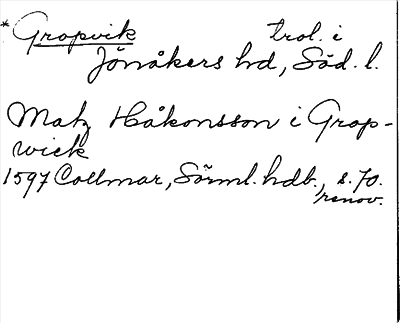 * Gropvik trol. i
Jönåkers hd, Söd. l.
Matz Håkonsson i Grop-
wick
1597 Collmar, Sörml. hdb., s. 70.
renov.